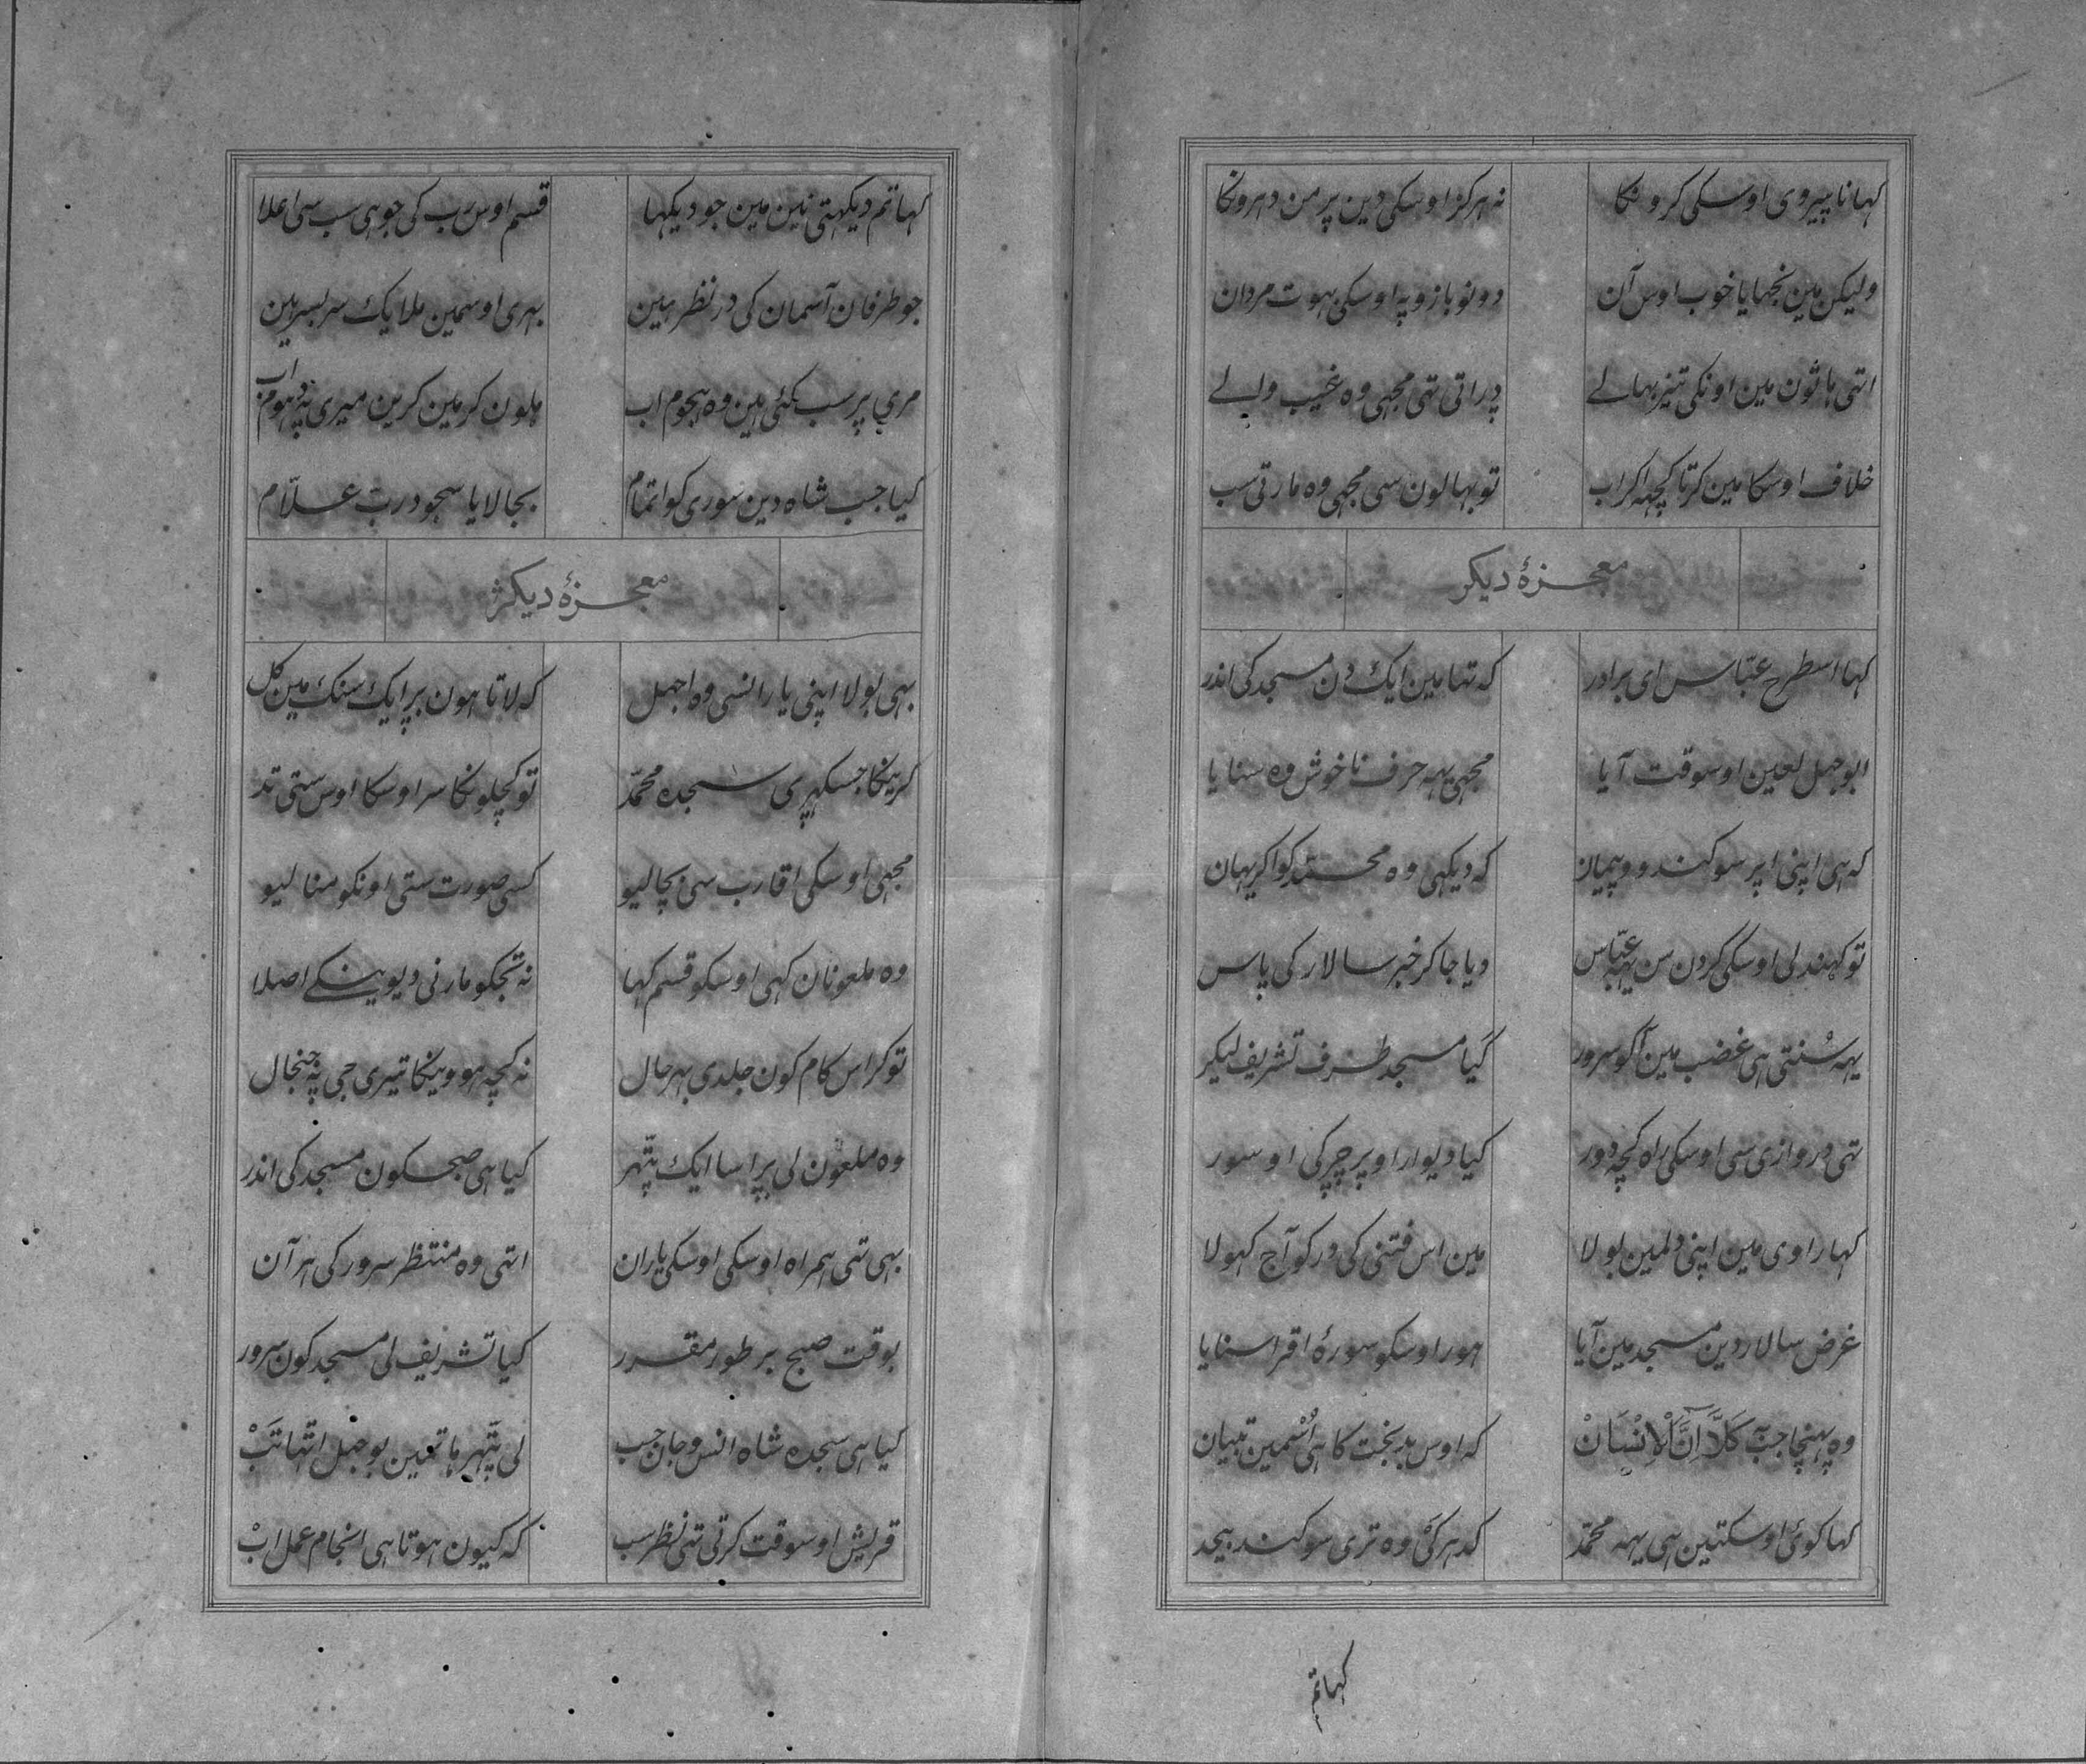 کہا نا پیروی اوسکی کرونکا نہ ہرکز اوسکی دین پر من دہرونکا
ولیکن مین نجہایا خوب اوس آن دونو بازو پہ اوسکی بہوت مردان
اتہی ہاثون مین اونکی تیز بہالے ڈراتی تہی مجہی وہ غیب والے
خلاف اوسکا مین کرتا کچہہ اکر اب تو بہالون سی مجہی وہ مارتی سب
معجزۂ دیکر
کہا اسطرح عبّاس ای برادر کہ تہا مین ایک دن مسجد کی اندر
ابوجہل لعین اوسوقت آیا مجہی یہہ حرف ناخوش وہ سنایا
کہ ہی اپنی اپر سوکند و پیمان کہ دیکہی وہ محمّد کو اکر یہان
تو کہندلی اوسکی کردن سن یہہ عبّاس دیا جا کر خبر سالار کی پاس
یہہ سُنتی ہی غضب مین آکو سرور کیا مسجد طرف تشریف لیکر
تہی دروازی سی اوسکی راہ کچہ دور کیا دیوار اوپر چڑ کی او سور
کہا راوی مین اپنی دلمین بولا مین اس فتنی کی در کو آج کہولا
غرض سالار دین مسجد مین آیا ہور اوسکو سورۂ اقرا سنایا
وہ پہنچا جب کَلَّا اِنَّ الْاِنْسَانْ کہ اوس بدبخت کا ہی اُسْمین تبیان
کہا کوئ اوسکتین ہی یہہ محمّد کدہر کَی وہ تری سوکند بیحد
کہا تم
کہا تم دیکہتی نین مین جو دیکہا قسم اوس رب کی جو ہی سب سی اعلا
جو طرفان آسمان کی در نظر ہین بہری اوسمین ملایک سر بسر ہین
مری پر سب کئی ہین وہ ہجوم اب ہلون کر مین کرین میری پہ دہوم اب
کیا جب شاہ دین سوری کو اتمام بجا لایا سجود ربّ علّام
معجزۂ دیکر
بہی بولا اپنی یارانسی وہ اجہل کہ لاتا ہون بر ایک سنک مین کل
کریںکا جسکہڑی سجدہ محمّد تو کچلونکا سر اوسکا اوس ستی تد
مجہی اوسکی اقارب سی بچا لیو کسی صورت ستی اونکو منا لیو
وہ ملعونان کہی اوسکو قسم کہا نہ تجکو مارنی دیوینکے اصلا
تو کر اس کام کون جلدی بہر حال نہ کچہ ہووینکا تیری جی پہ جنجال
وہ ملعون لی بڑا سا ایک پتّہر کیا ہی صبحکون مسجد کی اندر
بہی تہی ہمراہ اوسکی اوسکی یاران اتہی وہ منتظر سرور کی ہر آن
بوقت صبح بر طور مقرر کیا تشریف لی مسجد کون سرور
کیا ہی سجدہ شاہ انس و جان جب لی پتّہر ہات مین بوجہل اتہا تَبْ
قریش اوسوقت کرتی تہی نظر سب کہ کیون ہوتا ہی انجام عمل ابْ